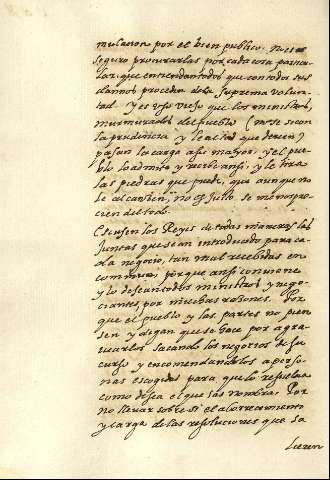 mulacion por el bien publico. No es
seguro procurarlas por cada cosa particu-
lar, que entiendan todos que con todos sus
daños proceden de la suprema volun-
tad. Y es uso viejo que los ministros,
murmurados del pueblo
la prudencia y lealtad que deven)
pasan la carga a su mayor, y el pue-
blo lo admite y recibe ansi, y le tira
las piedras que puede, que aunque no
le alcancen, no es justo se menospre-
cien del todo.
Escusen los Reyes de todas maneras las
Juntas que se an introducido para ca-
da negocio, tan mal recebidas en
comun, porque ansi conviene
y lo desean todos ministros y nego-
ciantes, por muchas razones. Por
que el pueblo y las partes no pien-
sen y digan que se hace por agra-
viarlos sacando los negocios de su
curso y encomendandolos a perso-
nas escogidas para que lo resuelvan
como desea el que las nombra. Por
no llevar sobre si el aborrecimiento
y carga de las resoluciones que sa
lieren